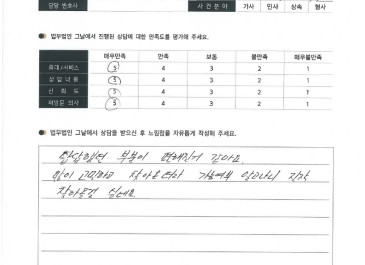 담당 변호사 사건분야 가사 민사 상속 형사
법무법인 그날에서 진행된 상담에 대한 만족도를 평가해 주세요.
매우만족 만족 보통 불만족 매우불만족
응대/서비스 5 4 3 2 1
상담내용 5 4 3 2 1
신뢰도 5 4 3 2 1
재방문 의사 5 4 3 2 1
법무법인 그날에서 상담을 받으신 후 느낌점을 자유롭게 작성해 주세요.
답답했던 부분이 편해진거 같아요
많이 고민하고 찾아왔는데 알고나니 진작
찾아올걸 싶네요